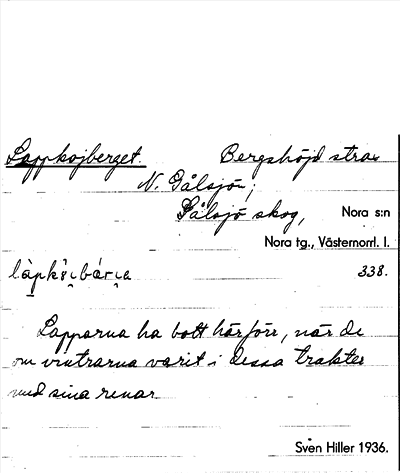 Lappkojberget. Bergshöjd strax
N. Gålsjön;
Gålsjö skog, Nora s:n
Nora tg., Västernorrl. l.
338.
Lapparna ha bott härförr, när de
om vintrarna varit i dessa trakter
med sina renar
Sven Hiller 1936.